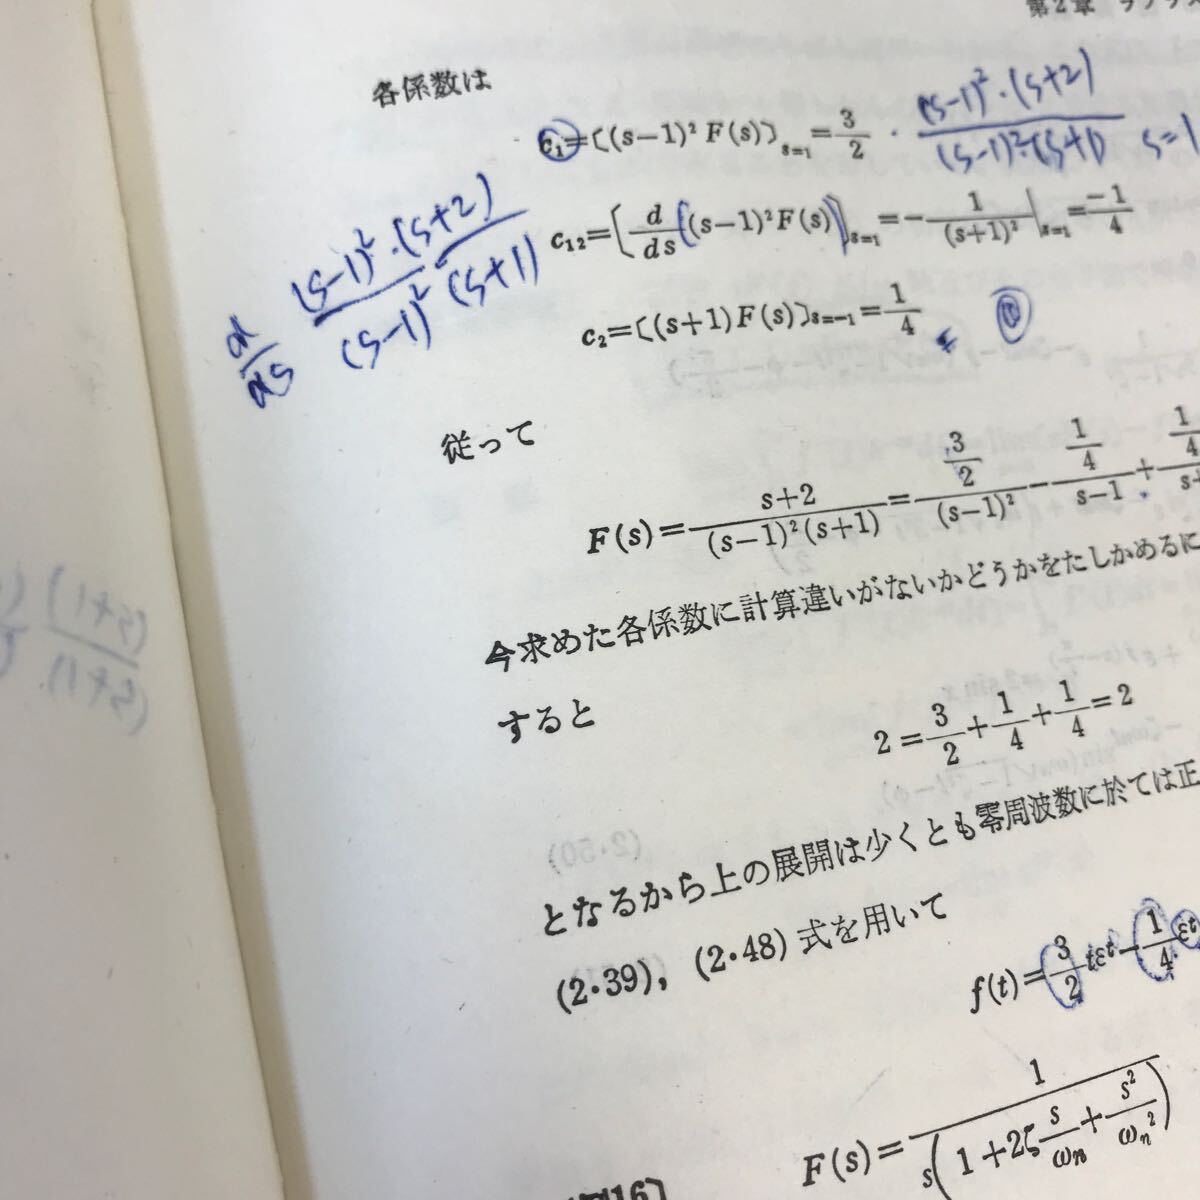 第2章 ラプラス
各係数は
c₁=[(s−1)² F(s)]ₛ₌₁=3/2 · (s−1)²·(s+2)/(s−1)²·(s+1) s=1
c₁₂=[d/ds((s−1)²F(s))]ₛ₌₁=−1/(s+1)²|ₛ₌₁=−1/4
d/ds (s−1)²·(s+2)/(s−1)²(s+1)
c₂=[(s+1)F(s)]ₛ₌₋₁=1/4
従って
F(s)=s+2/(s−1)²(s+1)=3/2/(s−1)²−1/4/s−1+1/4/s+
今求めた各係数に計算違いがないかどうかをたしかめるに
すると
2=3/2+1/4+1/4=2
となるから上の展開は少くとも零周波数に於ては正
(2·39), (2·48) 式を用いて
f(t)=3/2tεᵗ−1/4εᵗ
F(s)=1/s(1+2ζs/ωₙ+s²/ωₙ²)
例16]
(s+1)
(s+1)
(2·50)